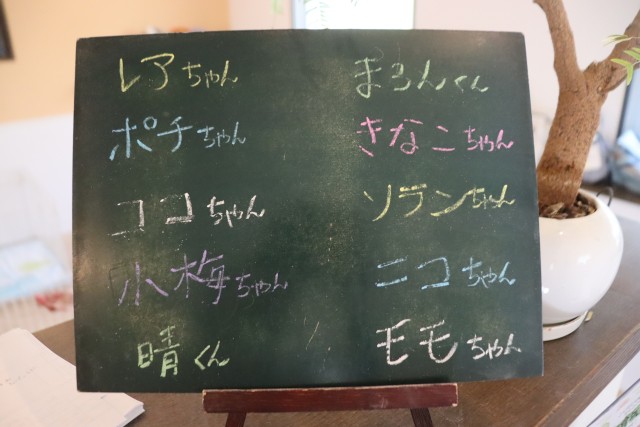 レアちゃん
ポチちゃん
ココちゃん
小梅ちゃん
晴くん
まろんくん
きなこちゃん
ソランちゃん
ニコちゃん
モモちゃん